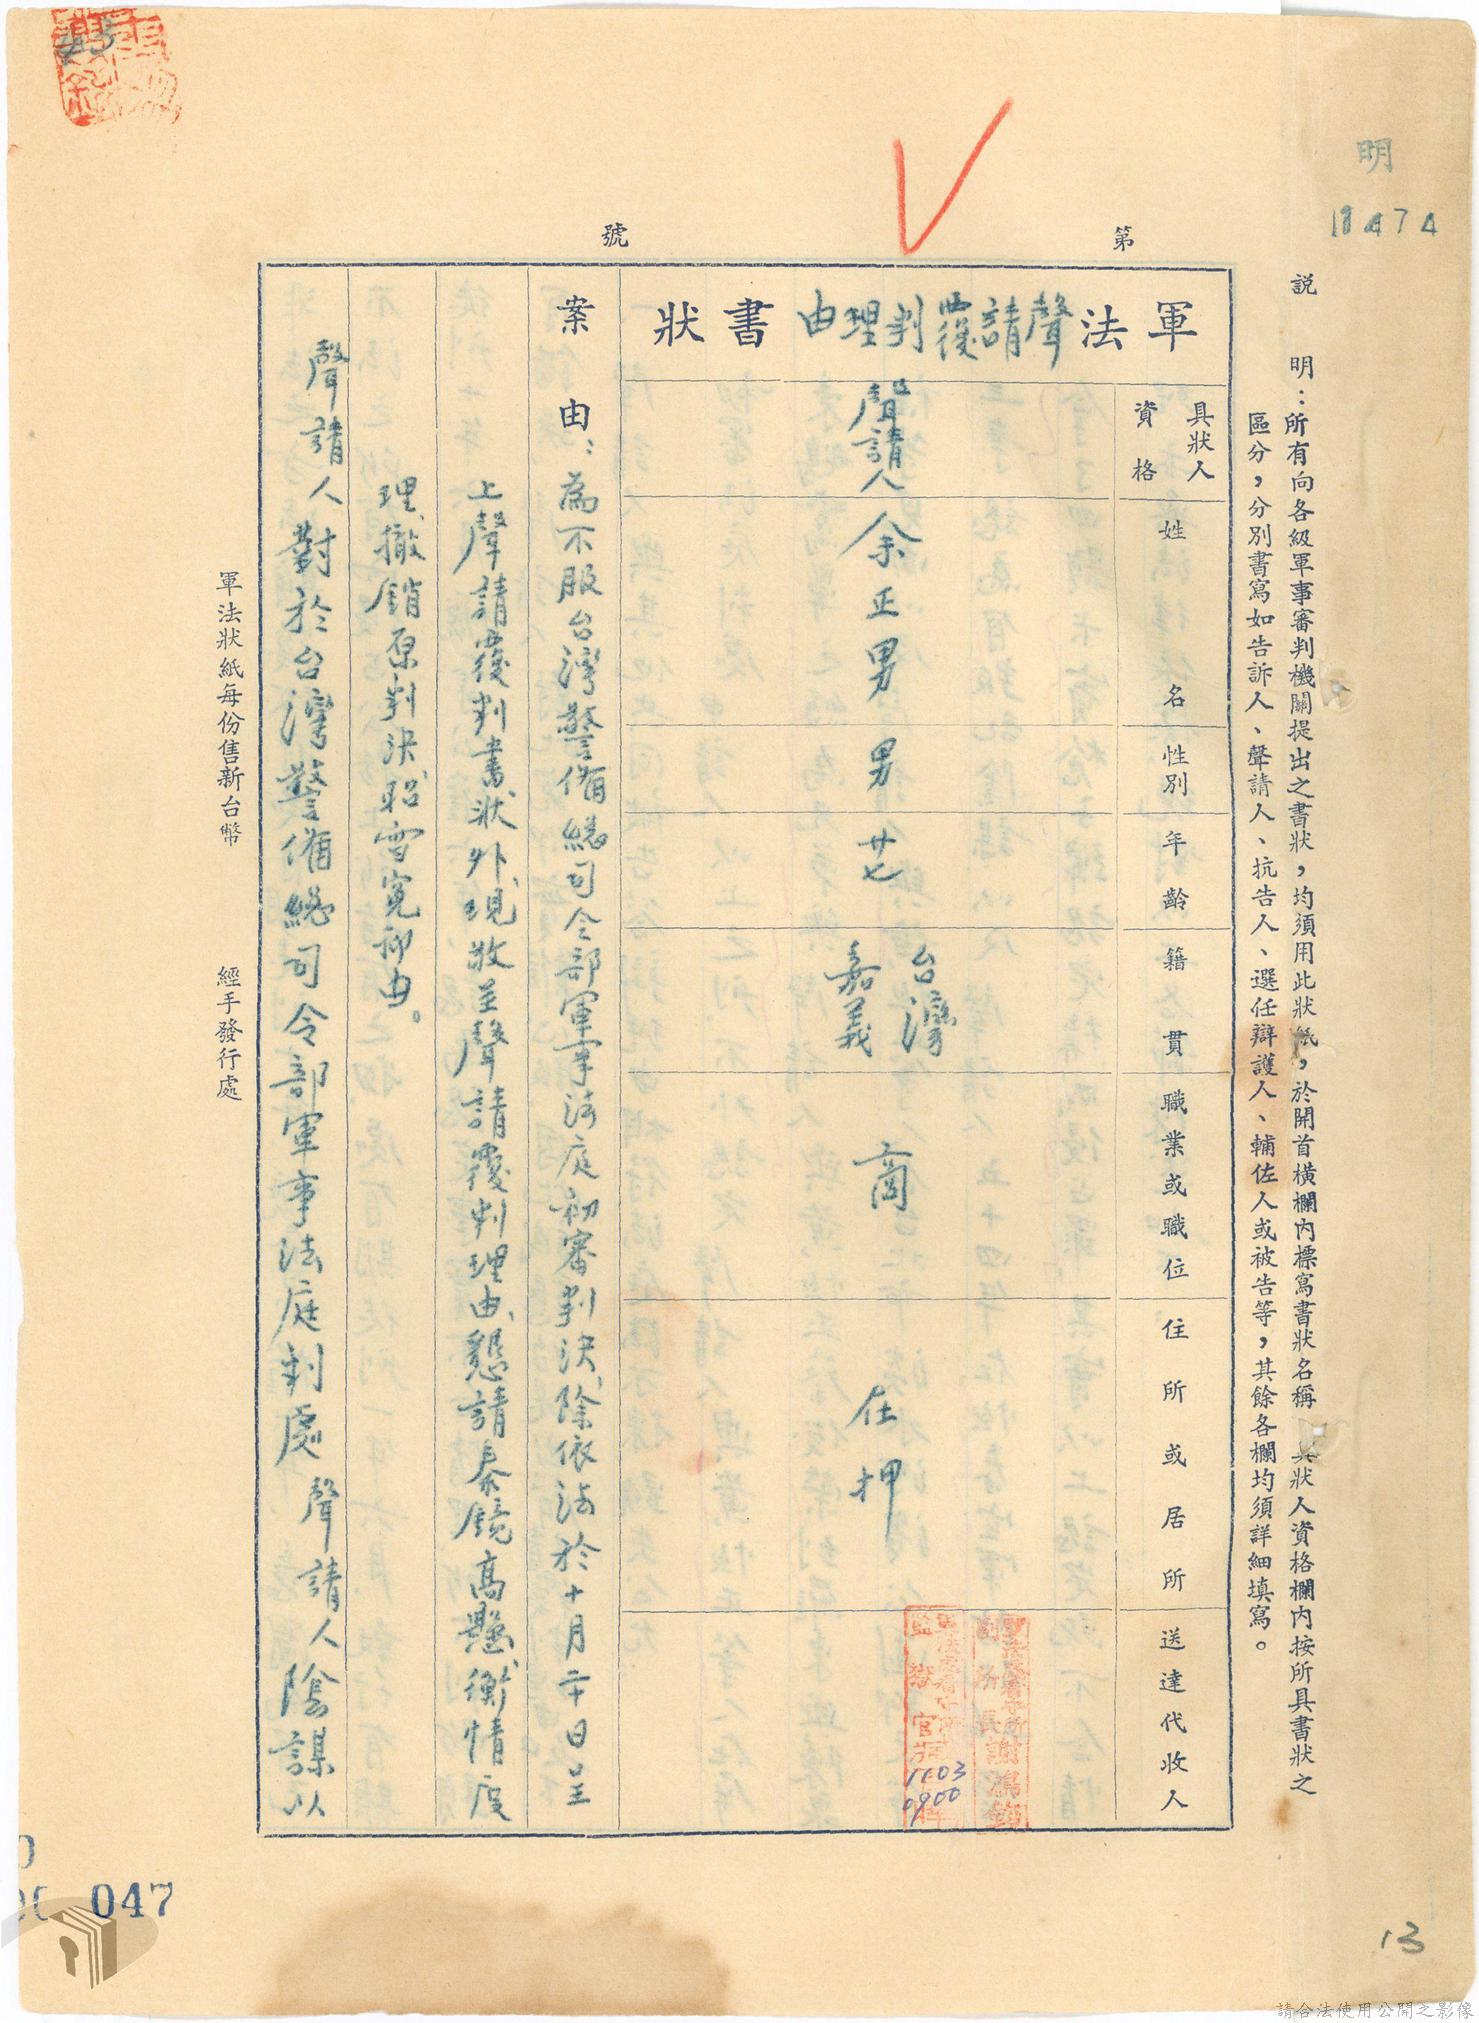 明
18474
說　明：所有向各級軍事審判機關提出之書狀，均須用此狀紙，於開首橫欄內標寫書狀名稱　具狀人資格欄內按所具書狀之
區分，分別書寫如告訴人、聲請人、抗告人、選任辯護人、輔佐人或被告等，其餘各欄均須詳細填寫。
第　號
軍法聲請覆判理由書狀
具狀人資格
姓名
性別
年齡
籍貫
職業或職位
住所或居所
送達代收人
聲請人
余正男
男
廿七
台灣
嘉義
商
在押
謝鴻鈞
1103
0900
案由：為不服台灣警備總司令部軍事法庭初審判決、除依法於十月二十日呈
上聲請覆判書狀外、現敬呈聲請覆判理由、懇請秦鏡高懸、衡情度
理、撤銷原判決、昭雪寃抑由。
聲請人對於台灣警備總司令部軍事法庭判處　聲請人陰謀以
軍法狀紙每份售新台幣　經手發行處
047
13
請合法使用公開之影像